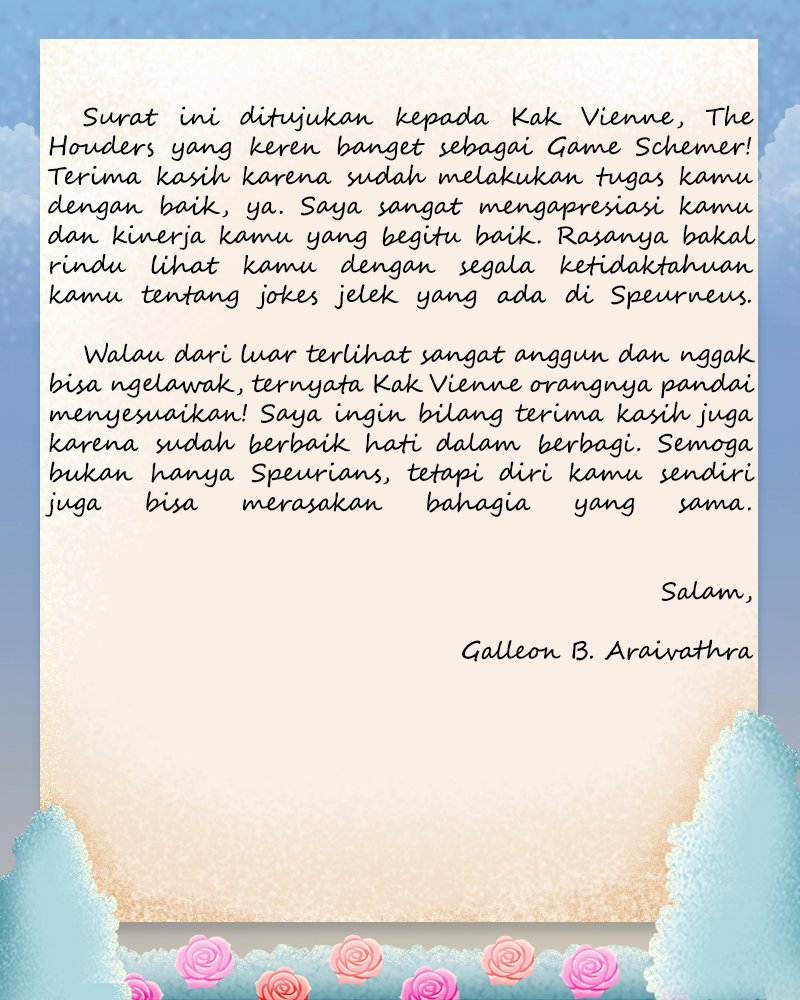 Surat ini ditujukan kepada Kak Vienne, The
Houders yang keren banget sebagai Game Schemer!
Terima kasih karena sudah melakukan tugas kamu
dengan baik, ya. Saya sangat mengapresiasi kamu
dan kinerja kamu yang begitu baik. Rasanya bakal
rindu lihat kamu dengan segala ketidaktahuan
kamu tentang jokes jelek yang ada di Speurneus.
Walau dari luar terlihat sangat anggun dan nggak
bisa ngelawak, ternyata Kak Vienne orangnya pandai
menyesuaikan! Saya ingin bilang terima kasih juga
karena sudah berbaik hati dalam berbagi. Semoga
bukan hanya Speurians, tetapi diri kamu sendiri
juga bisa merasakan bahagia yang sama.
Salam,
Galleon B. Araivathra